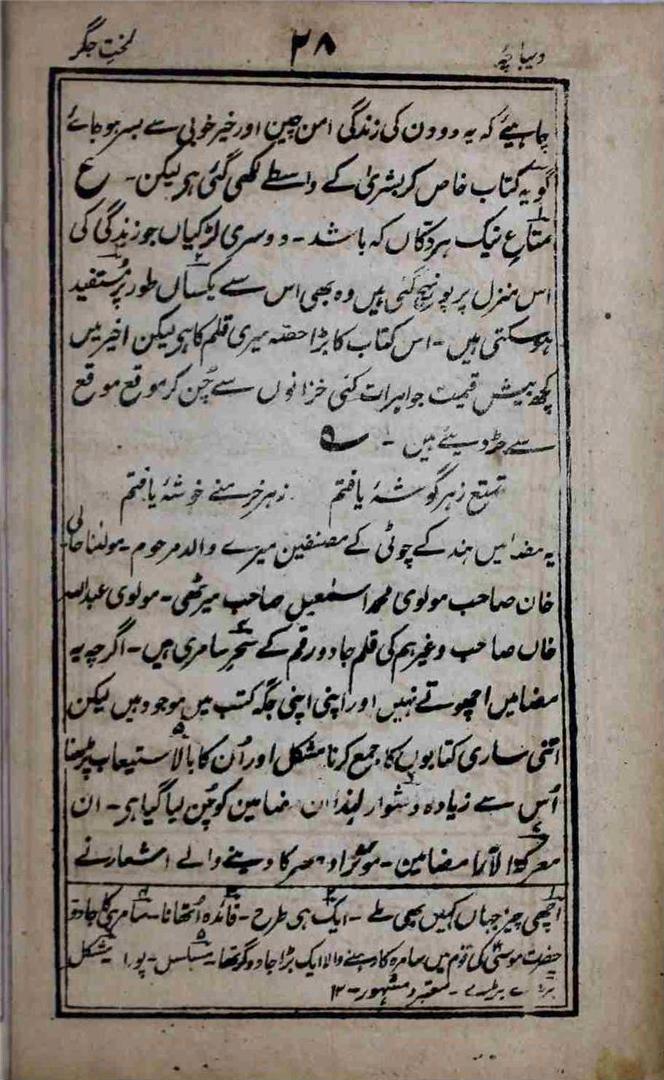 دیباچہ ۲۸ لختِ جگر
چاہیئے کہ یہ دو دن کی زندگی امن چین اور خیر خوبی سے بسر ہو جائے
گو یہ کتاب خاص کر بشریٰ کے واسطے لکھی گئی ہی لیکن۔ ع
متاعِ نیک ہر دکّاں کہ باشد۔ دوسری لڑکیاں جو زندگی کی
اس منزل پر پونہچ گئی ہیں وہ بھی اس سے یکساں طور پر مُستفید
ہوسکتی ہیں۔ اس کتاب کا بڑا حصّہ میری قلم کا ہی لیکن اخیر میں
کچھ بیش قیمت جواہرات کئی خزانوں سے چُن کر موقع موقع
سے جڑ دیئے ہیں۔ ؎
تمتع زہر گوشۂ یافتم زہر خرمنے خوشۂ یافتم
یہ مضامیں ہند کے چوٹی کے مصنفین میرے والد مرحوم۔ مولٰنا حالی
خان صاحب مولوی محمد اسمٰعیل صاحب میرٹھی۔ مولوی عبداللہ
خاں صاحب وغیرہم کی قلم جادو رقم کے سحرِ سامری ہیں۔ اگرچہ یہ
مضامیں اچھوتے نہیں اور اپنی اپنی جگہ کتب میں موجود ہیں لیکن
اتنی ساری کتابوں کا جمع کرنا مشکل اور اُن کا بالاستیعاب پڑھنا
اُس سے زیادہ دشوار لہٰذا ان مضامین کو چُن لیا گیا ہی۔ ان
معرکۃ الآرا مضامین۔ موثر اور پھڑکا دینے والے اشعار نے
اچھی چیز جہاں کہیں بھی ملے۔ ایک ہی طرح۔ فائدہ اُٹھانا۔ سامری کا جادو
حضرت موسٰیؑ کی قوم میں سامرہ کا رہنے والا ایک بڑا جادوگر تھا۔ پورا مشکل
بڑے بڑے۔ معتبر و مشہور۔ ۱۲